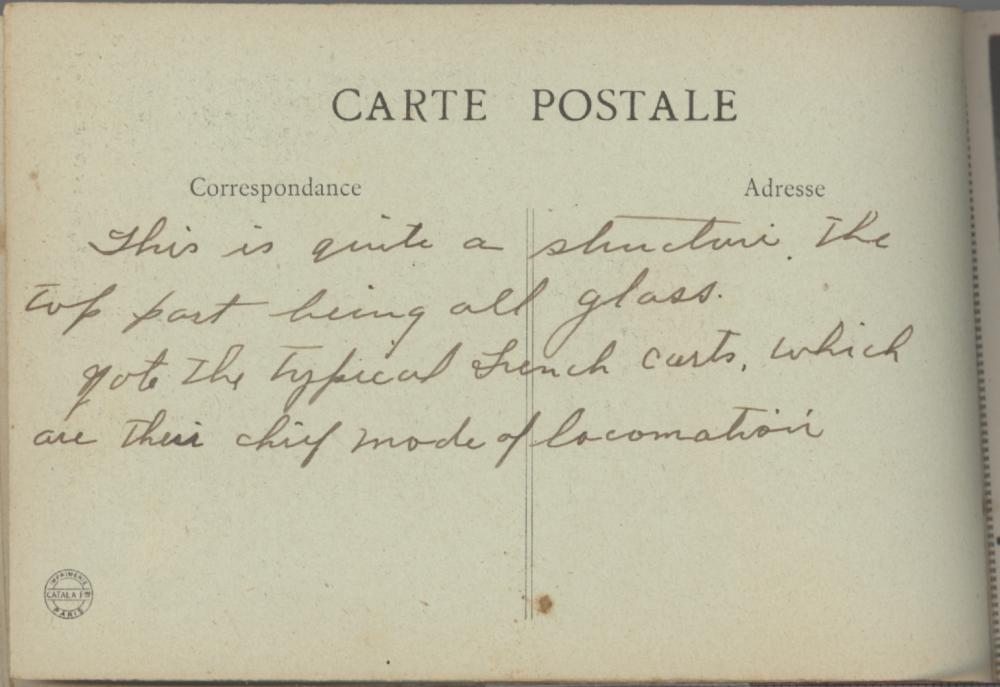 CARTE POSTALE
Correspondance
Adresse
This is quite a structure. The
top part being all glass.
Note the typical French carts, which
are their chief mode of locomation
IMPRIMERIE
CATALA Fres
PARIS